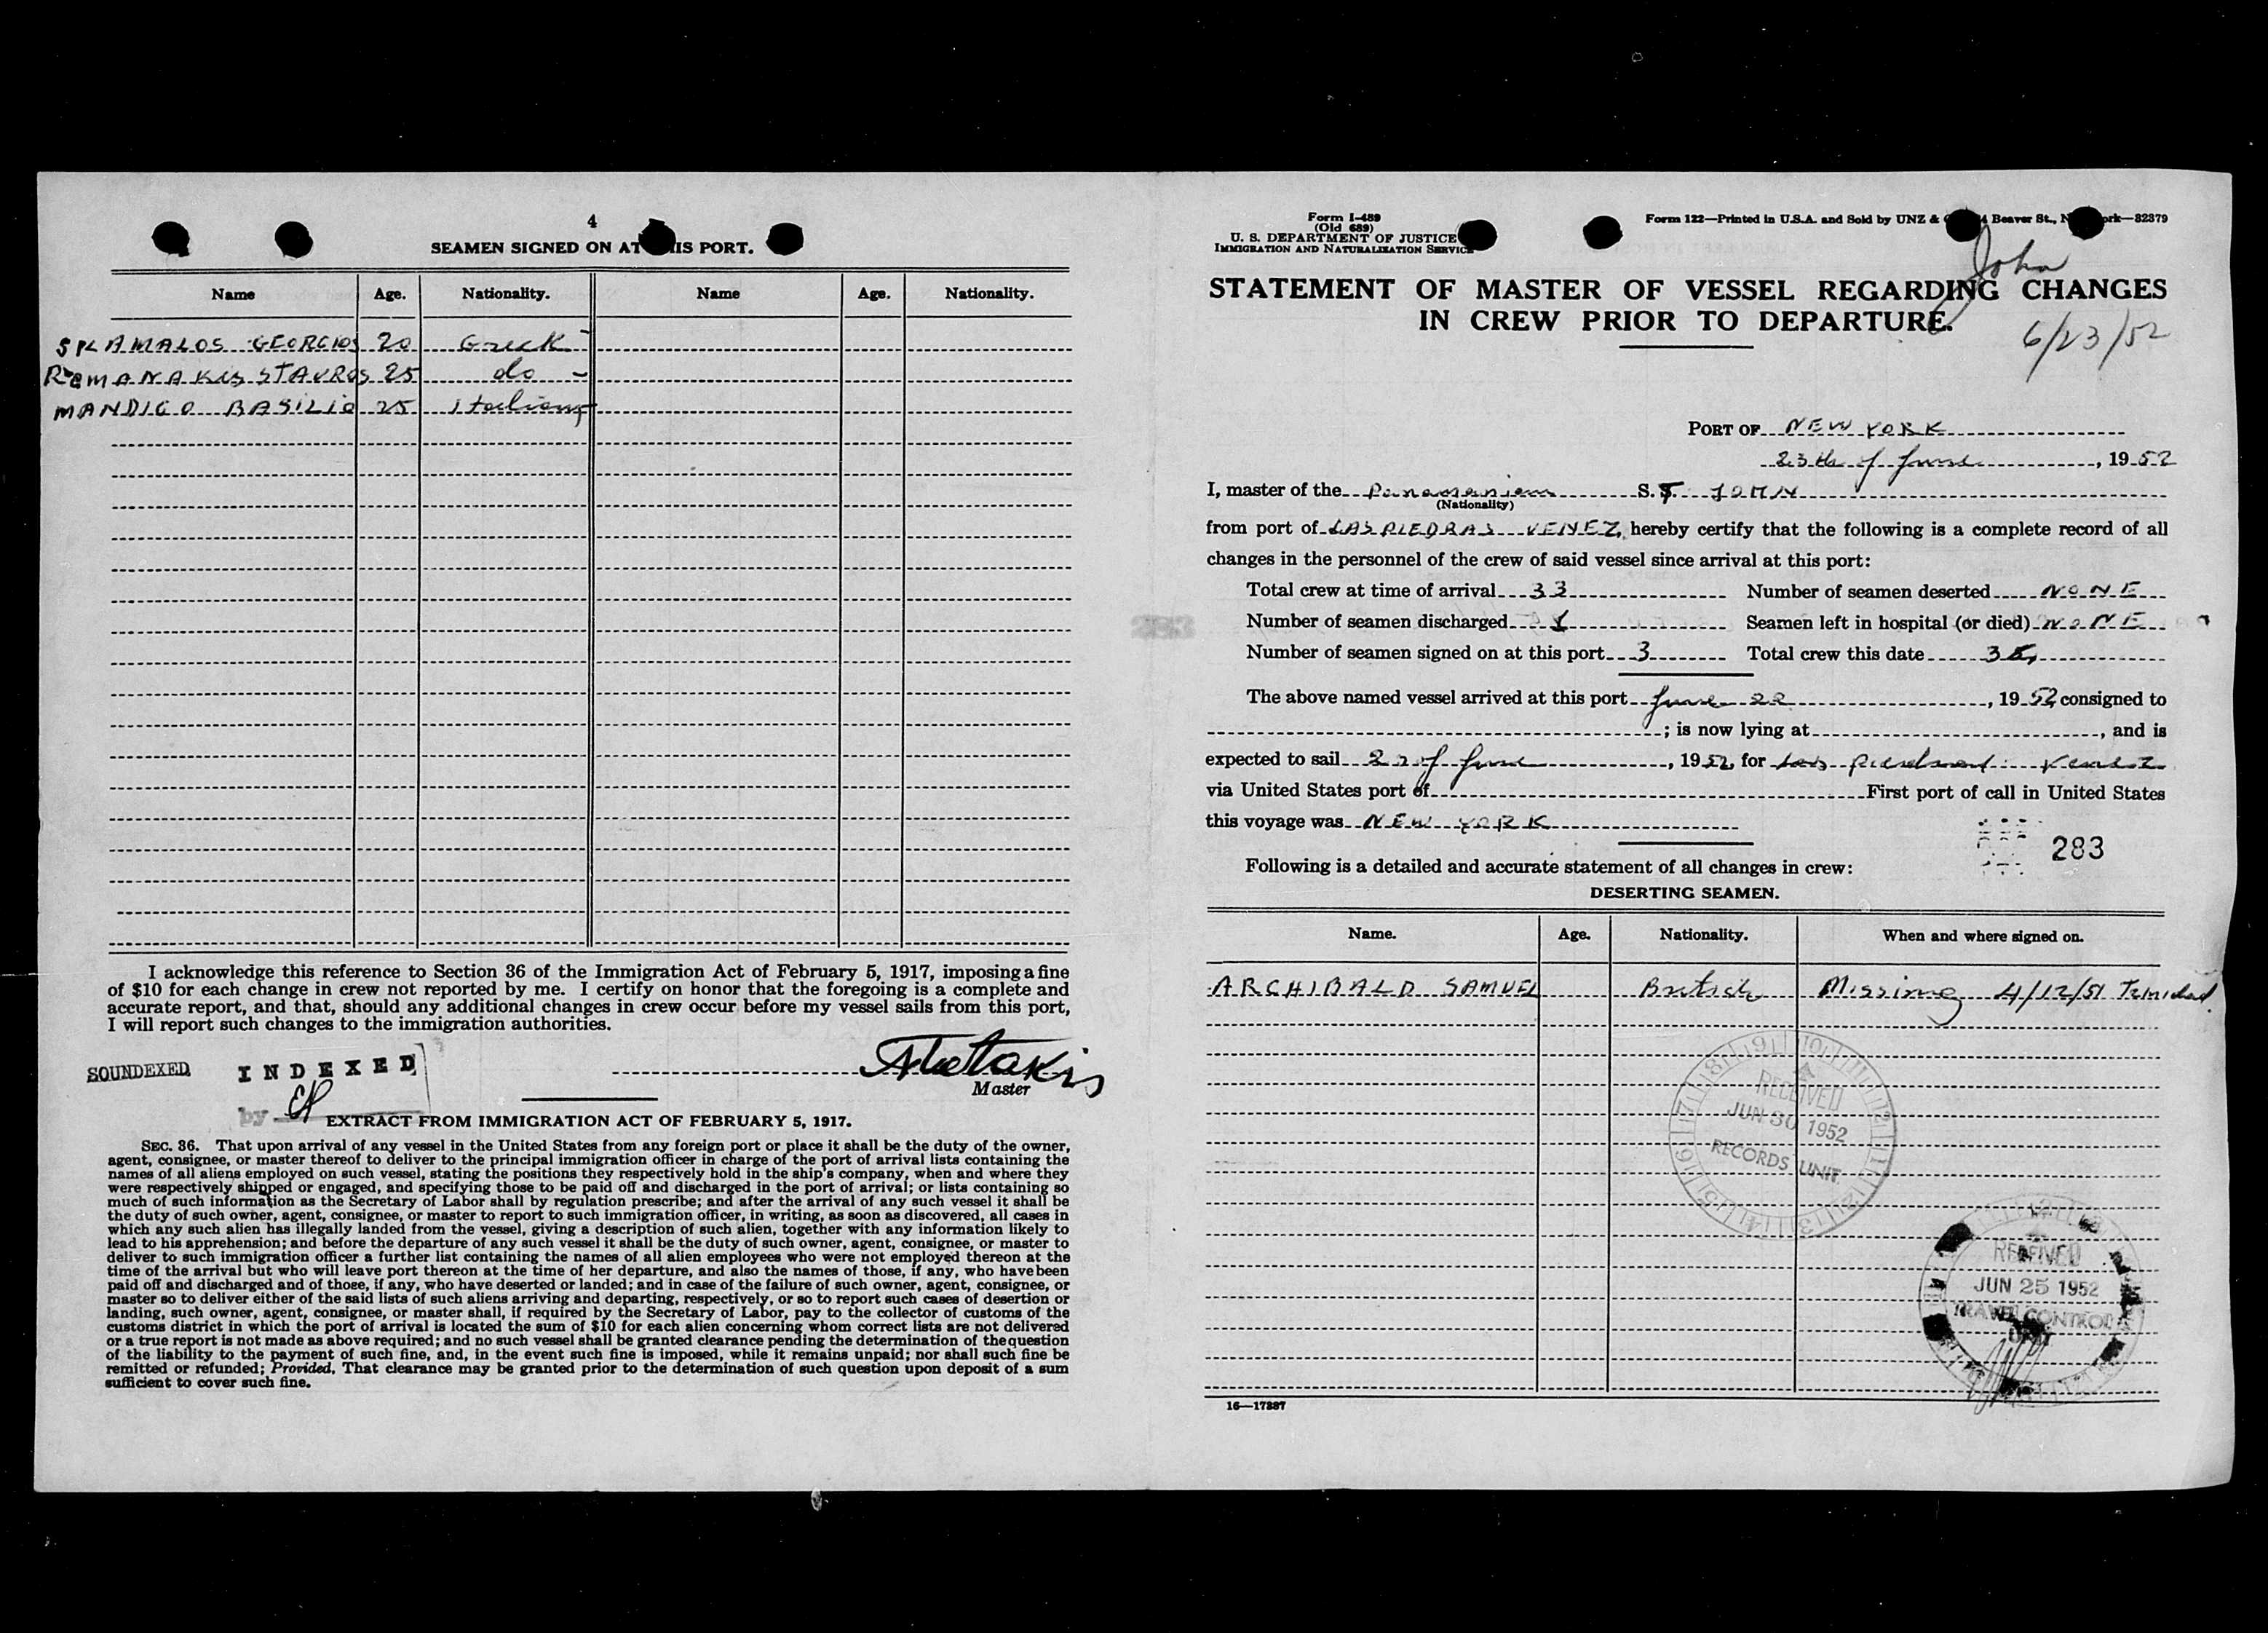 4
SEAMEN SIGNED ON AT THIS PORT.
Name Age. Nationality. Name Age. Nationality.
SPLAMALOS GEORGIOS 20 Greek
ROMANAKIS STAVROS 25 do
MANDICO BASILIO 25 Italian
I acknowledge this reference to Section 36 of the Immigration Act of February 5, 1917, imposing a fine
of $10 for each change in crew not reported by me. I certify on honor that the foregoing is a complete and
accurate report, and that, should any additional changes in crew occur before my vessel sails from this port,
I will report such changes to the immigration authorities.
SOUNDEXED INDEXED
Master
by
EXTRACT FROM IMMIGRATION ACT OF FEBRUARY 5, 1917.
SEC. 36. That upon arrival of any vessel in the United States from any foreign port or place it shall be the duty of the owner,
agent, consignee, or master thereof to deliver to the principal immigration officer in charge of the port of arrival lists containing the
names of all aliens employed on such vessel, stating the positions they respectively hold in the ship's company, when and where they
were respectively shipped or engaged, and specifying those to be paid off and discharged in the port of arrival; or lists containing so
much of such information as the Secretary of Labor shall by regulation prescribe; and after the arrival of any such vessel it shall be
the duty of such owner, agent, consignee, or master to report to such immigration officer, in writing, as soon as discovered, all cases in
which any such alien has illegally landed from the vessel, giving a description of such alien, together with any information likely to
lead to his apprehension; and before the departure of any such vessel it shall be the duty of such owner, agent, consignee, or master to
deliver to such immigration officer a further list containing the names of all alien employees who were not employed thereon at the
time of the arrival but who will leave port thereon at the time of her departure, and also the names of those, if any, who have been
paid off and discharged and of those, if any, who have deserted or landed; and in case of the failure of such owner, agent, consignee, or
master so to deliver either of the said lists of such aliens arriving and departing, respectively, or so to report such cases of desertion or
landing, such owner, agent, consignee, or master shall, if required by the Secretary of Labor, pay to the collector of customs of the
customs district in which the port of arrival is located the sum of $10 for each alien concerning whom correct lists are not delivered
or a true report is not made as above required; and no such vessel shall be granted clearance pending the determination of the question
of the liability to the payment of such fine, and, in the event such fine is imposed, while it remains unpaid; nor shall such fine be
remitted or refunded; Provided, That clearance may be granted prior to the determination of such question upon deposit of a sum
sufficient to cover such fine.
Form I-489
(Old 689)
U. S. DEPARTMENT OF JUSTICE
IMMIGRATION AND NATURALIZATION SERVICE
Form 122—Printed in U.S.A. and Sold by UNZ & Beaver St., 32379
John
STATEMENT OF MASTER OF VESSEL REGARDING CHANGES
IN CREW PRIOR TO DEPARTURE.
6/23/52
PORT OF NEW YORK
23th of June, 1952
I, master of the Panamanian S. T. JOHN
(Nationality)
from port of LAS PIEDRAS VENEZ, hereby certify that the following is a complete record of all
changes in the personnel of the crew of said vessel since arrival at this port:
Total crew at time of arrival 33 Number of seamen deserted NONE
Number of seamen discharged 1 Seamen left in hospital (or died) NONE
Number of seamen signed on at this port 3 Total crew this date 35
The above named vessel arrived at this port June 22, 1952 consigned to
; is now lying at , and is
expected to sail of June, 1952, for Las Piedras
via United States port of First port of call in United States
this voyage was NEW YORK
283
Following is a detailed and accurate statement of all changes in crew:
DESERTING SEAMEN.
Name. Age. Nationality. When and where signed on.
ARCHIBALD SAMUEL British Missing 4/12/51 Trinidad
RECEIVED
JUN 30 1952
RECORDS UNIT
RECEIVED
JUN 25 1952
TRAVEL CONTROL
UNIT
16—17887